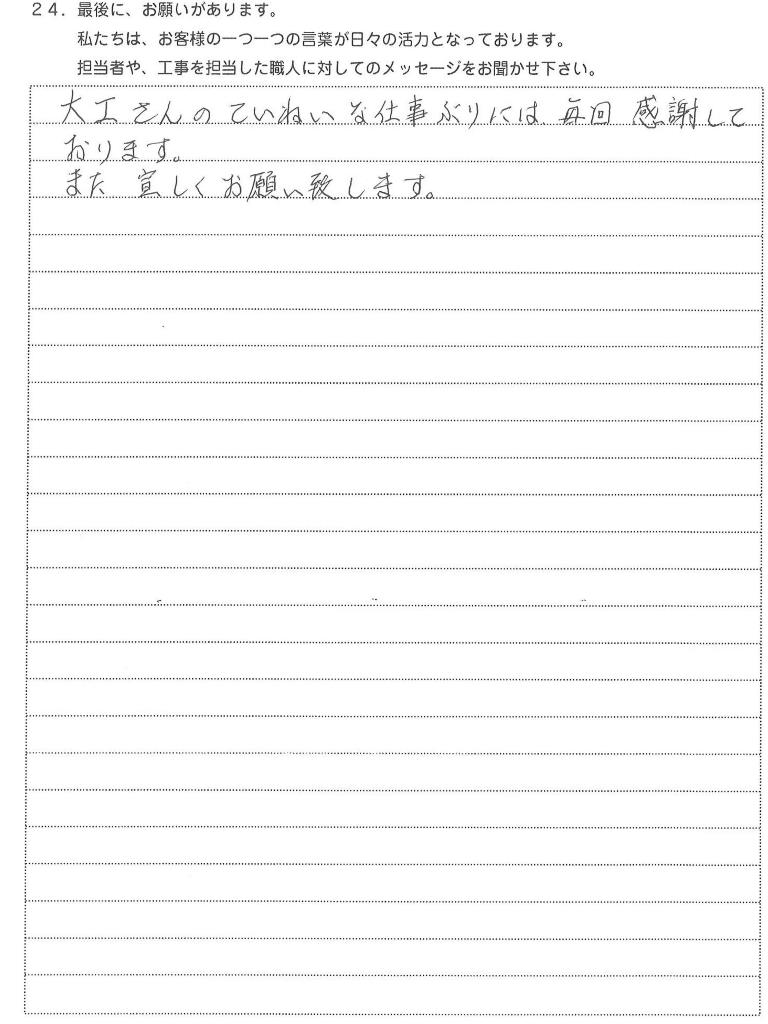 ２４．最後に、お願いがあります。
私たちは、お客様の一つ一つの言葉が日々の活力となっております。
担当者や、工事を担当した職人に対してのメッセージをお聞かせ下さい。
大工さんのていねいな仕事ぶりには毎回感謝して
おります。
また宜しくお願い致します。